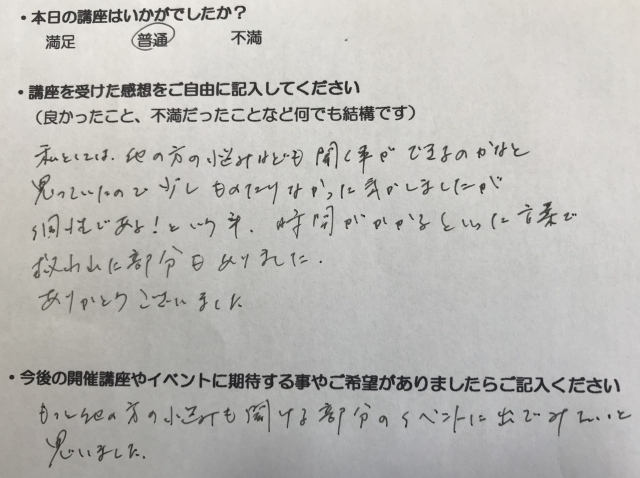 ・本日の講座はいかがでしたか？
満足 普通 不満
・講座を受けた感想をご自由に記入してください
（良かったこと、不満だったことなど何でも結構です）
私としては、他の方の悩みなども聞く事ができるのかなと
思っていたので少しものたりなかった気がしましたが
個性である！という事、時間がかかるといった言葉で
救われた部分もありました。
ありがとうございました
・今後の開催講座やイベントに期待する事やご希望がありましたらご記入ください
もっと他の方の悩みも聞ける部分のイベントに出てみたいと
思いました。